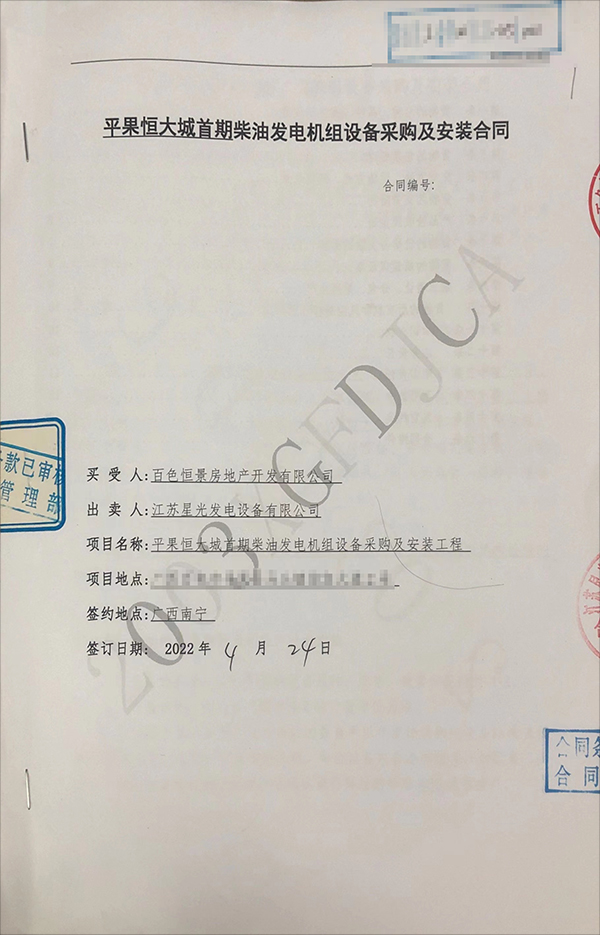 平果恒大城首期柴油发电机组设备采购及安装合同
合同编号:
2003XGFDJCA
款已审核
管理部
买受人:百色恒景房地产开发有限公司
出卖人:江苏星光发电设备有限公司
项目名称:平果恒大城首期柴油发电机组设备采购及安装工程
项目地点:
签约地点:广西南宁
签订日期: 2022年 4 月 24日
合同条
合同